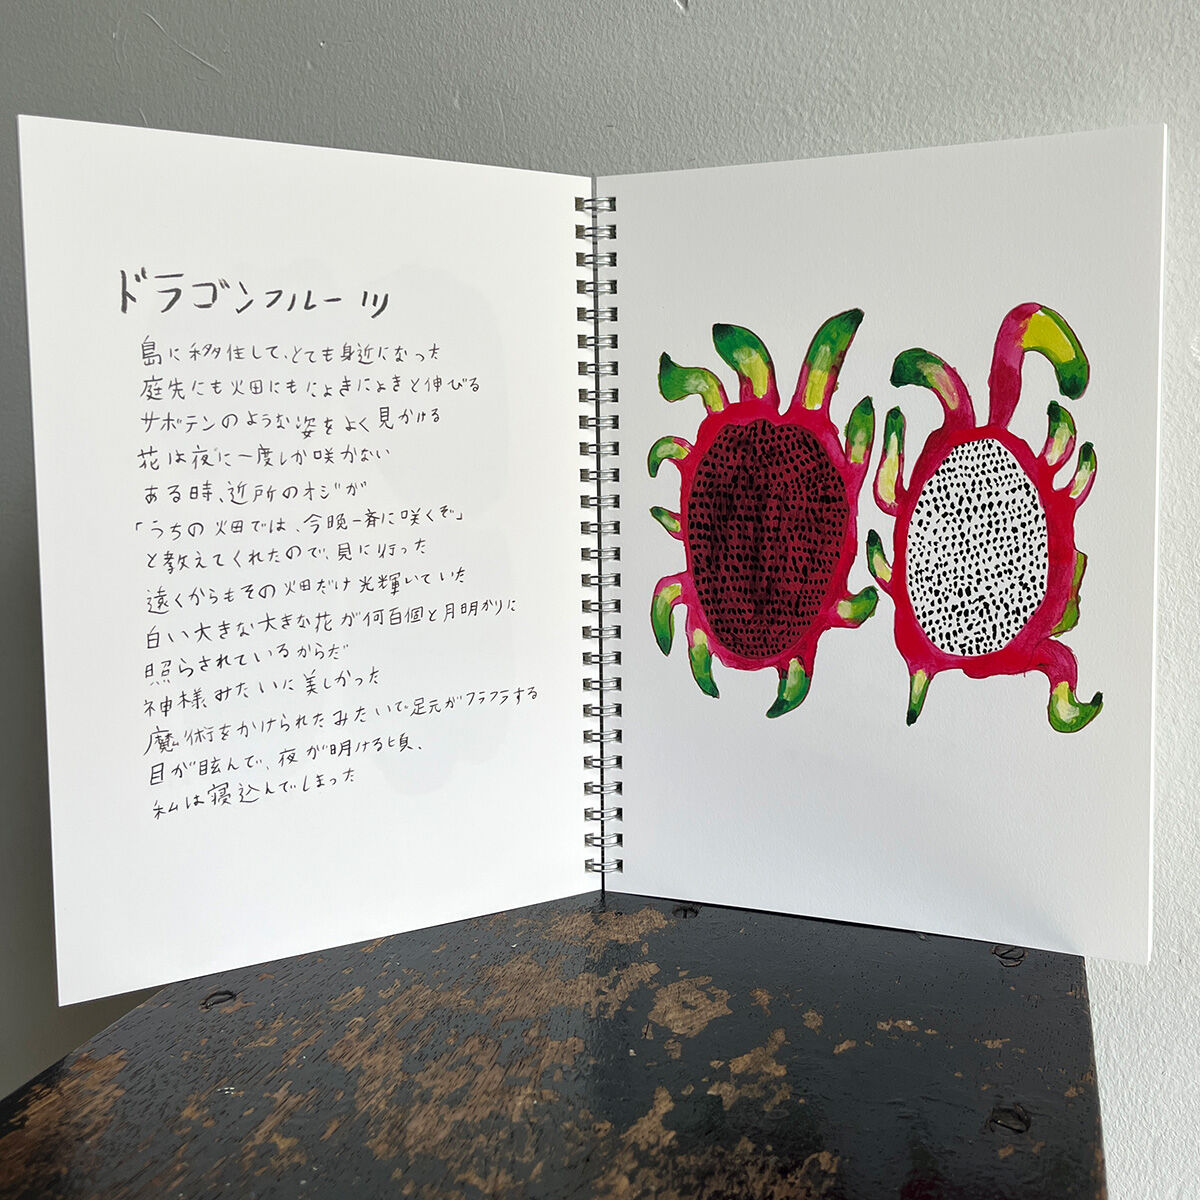 ドラゴンフルーツ
島に移住して、とても身近になった
庭先にも火田にもにょきにょきと伸びる
サボテンのような姿をよく見かける
花は夜に一度しか咲かない
ある時、近所のオジが
「うちの畑では、今晩一斉に咲くぞ」
と教えてくれたので、見に行った
遠くからもその畑だけ光輝いていた
白い大きな大きな花が何百個と月明かりに
照らされているからだ
神様みたいに美しかった
魔術をかけられたみたいで足元がフラフラする
目が眩んで、夜が明ける頃、
私は寝込んでしまった